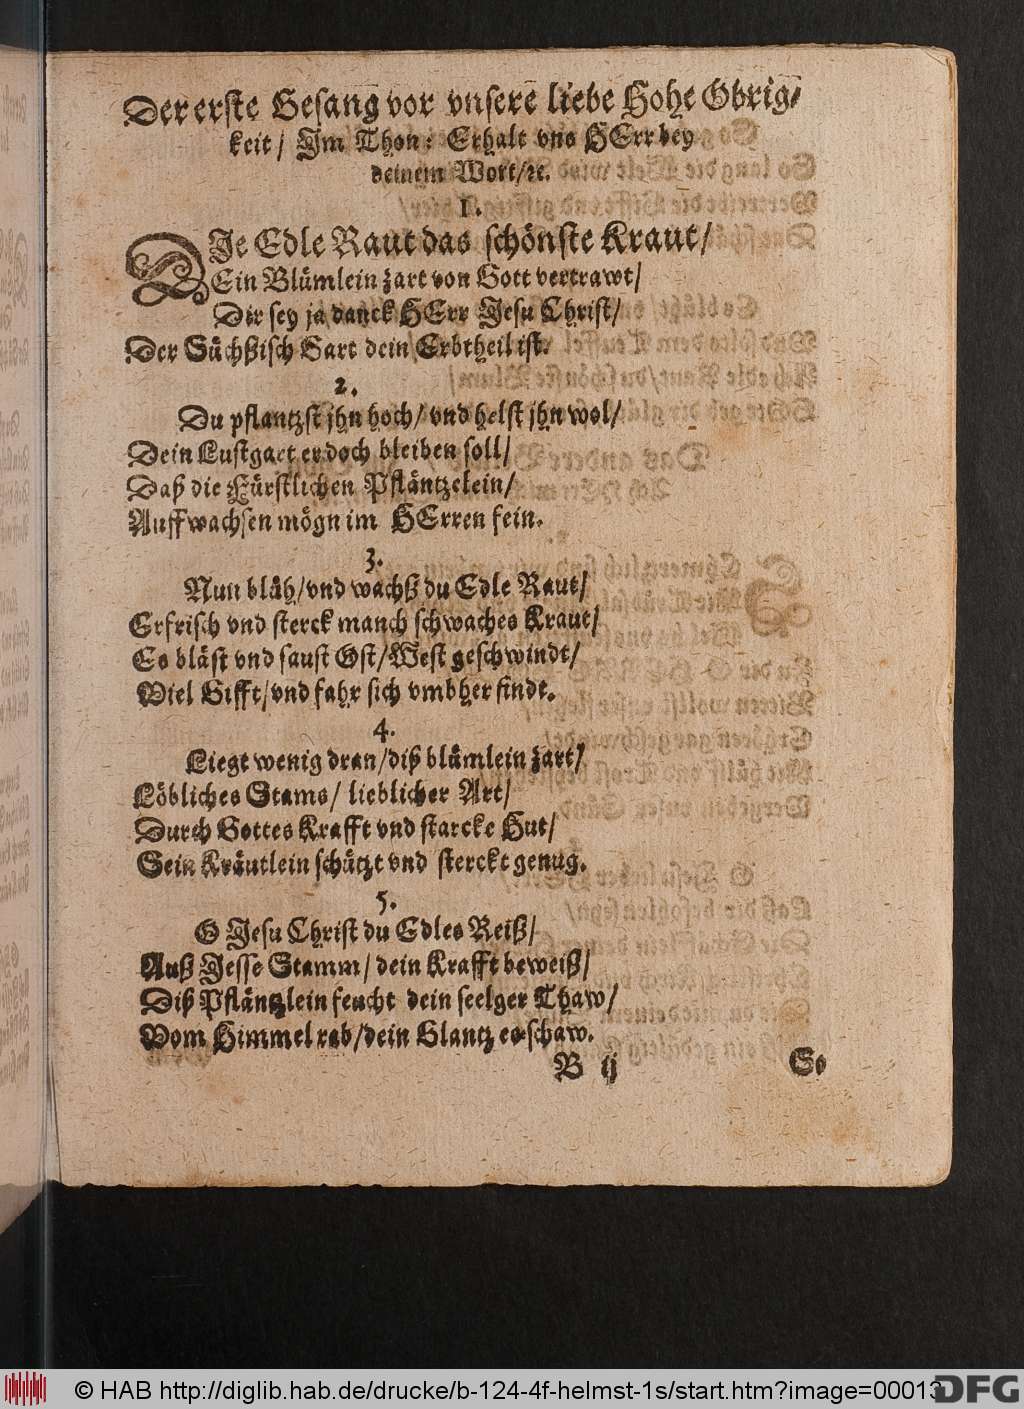 Der erste Gesang vor vnsere liebe Hohe Obrig/
keit/ Im Thon: Erhalt vns HErr bey
deinem Wort/ꝛc.
1.
DIe Edle Raut das schönste Kraut/
Ein Blümlein zart von Gott vertrawt/
Dir sey ja danck HErr Jesu Christ/
Der Sächßisch Gart dein Erbtheil ist.
2.
Du pflantzst jhn hoch/ vnd helst jhn wol/
Dein Lustgart er doch bleiben soll/
Daß die Fürstlichen Pfläntzelein/
Auffwachsen mögn im HErren fein.
3.
Nun blüh/vnd wachß du Edle Raut/
Erfrisch vnd sterck manch schwaches Kraut/
Es bläst vnd saust Ost/West geschwindt/
Viel Gifft/vnd fahr sich vmbher findt.
4.
Liegt wenig dran/diß blümlein zart/
Löbliches Stams/ lieblicher Art/
Durch Gottes Krafft vnd starcke Hut/
Sein Kräutlein schützt vnd sterckt genug.
5.
O Jesu Christ du Edles Reiß/
Auß Jesse Stamm/ dein Krafft beweiß/
Diß Pfläntzlein feucht dein seelger Thaw/
Vom Himmel rab/dein Glantz es schaw.
B ij So
© HAB http://diglib.hab.de/drucke/b-124-4f-helmst-1s/start.htm?image=00013
DFG